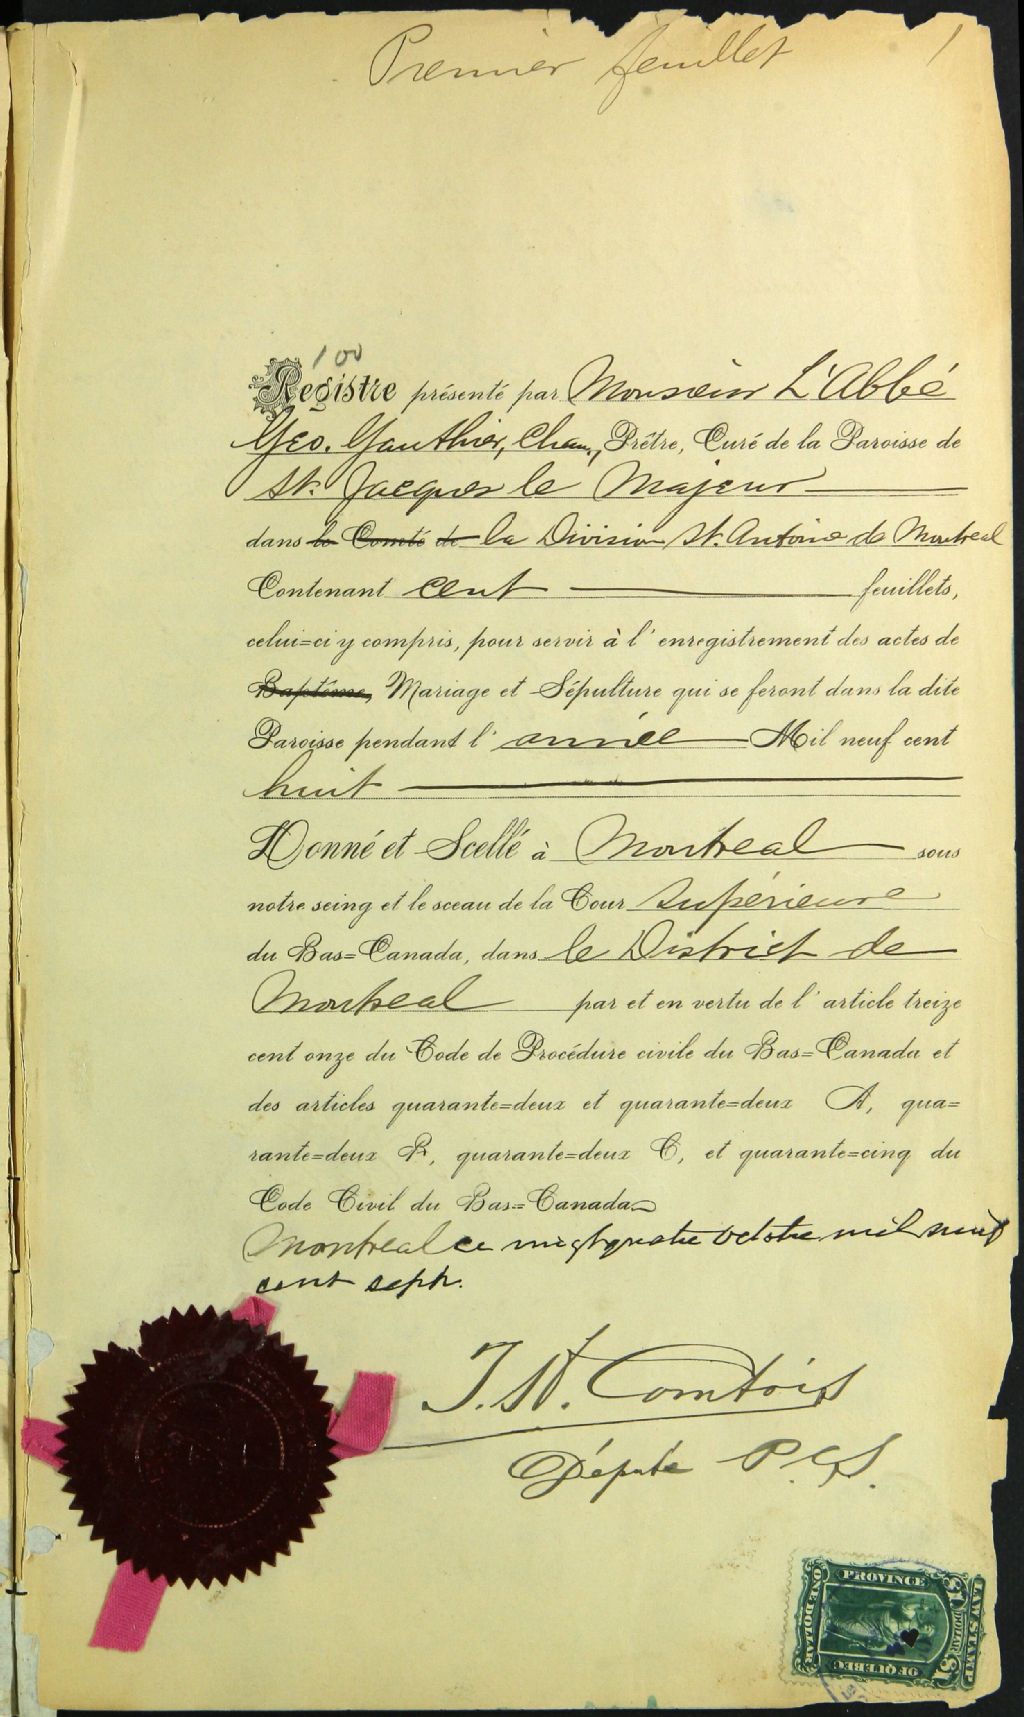 Premier feuillet 1
100
Registre présenté par Monsieur L'Abbé
Geo. Gauthier, Chan., Prêtre, Curé de la Paroisse de
St. Jacques le Majeur
dans le Comté de la Division St. Antoine de Montreal
Contenant cent feuillets,
celui=ci y compris, pour servir à l'enregistrement des actes de
Baptême, Mariage et Sépulture qui se feront dans la dite
Paroisse pendant l'année Mil neuf cent
huit
Donné et Scellé à Montreal sous
notre seing et le sceau de la Cour Supérieure
du Bas=Canada, dans le District de
Montreal par et en vertu de l'article treize
cent onze du Code de Procédure civile du Bas=Canada et
des articles quarante=deux et quarante=deux A, qua=
rante=deux B, quarante=deux C, et quarante=cinq du
Code Civil du Bas=Canada
Montreal ce vingtquatre Octobre mil neuf
cent sept.
J. St. Comtois
Député P.C.S.
PROVINCE
OF QUEBEC
LAW STAMP
ONE DOLLAR
$1 DOLLAR $1